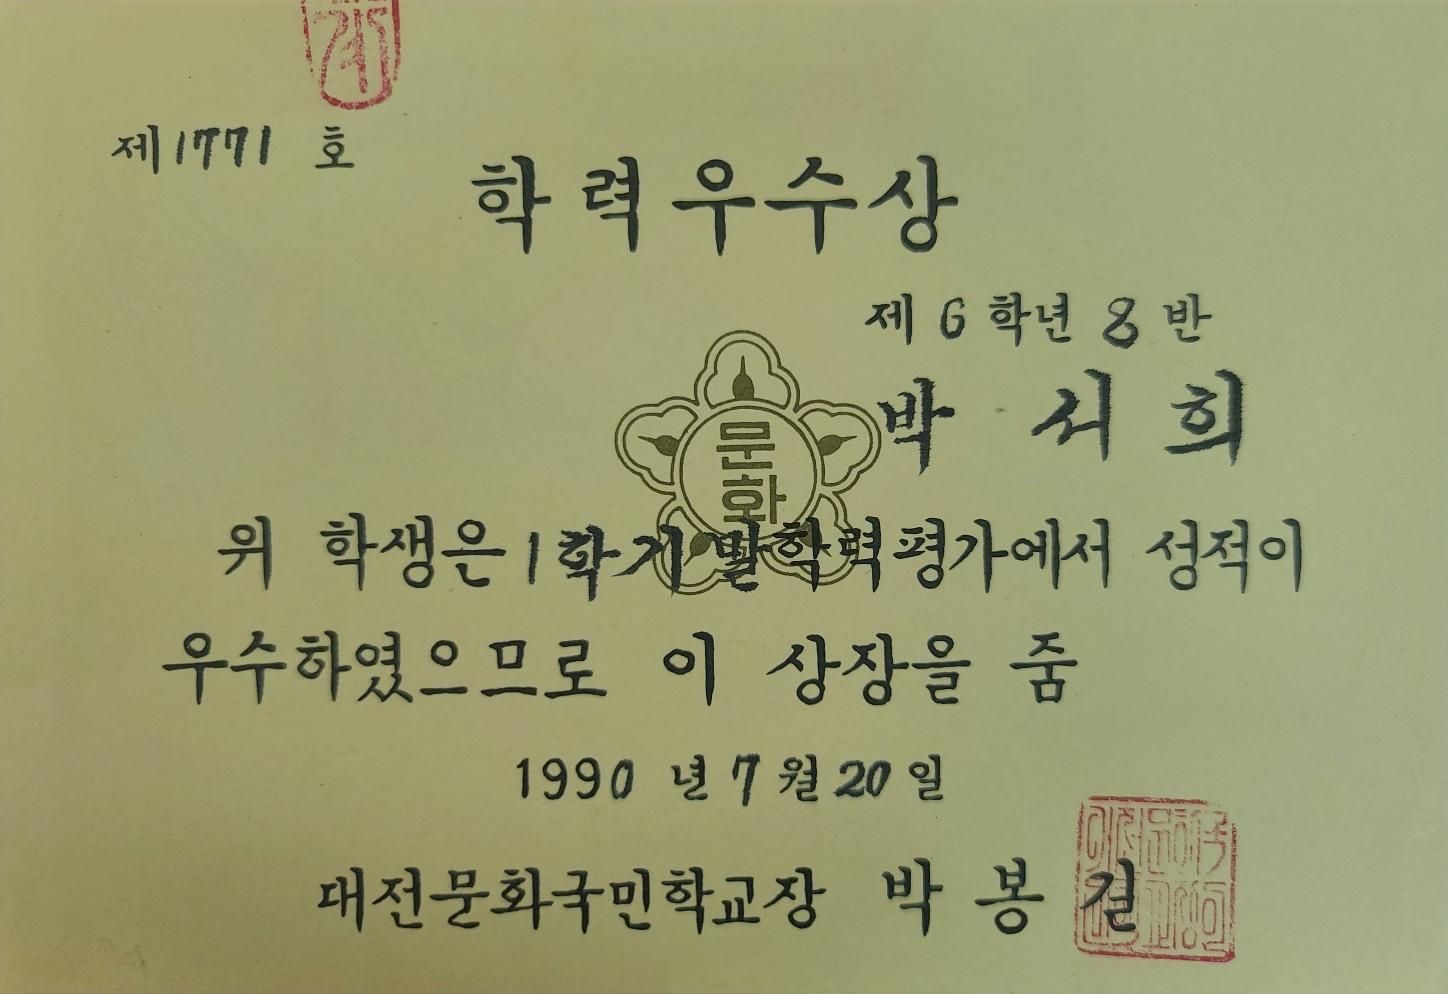 계
제1771 호
학력우수상
제 6 학년 8 반
박 서 희
문화
위 학생은 1학기말학력평가에서 성적이
우수하였으므로 이 상장을 줌
1990 년 7 월 20 일
대전문화국민학교장 박 봉 걸